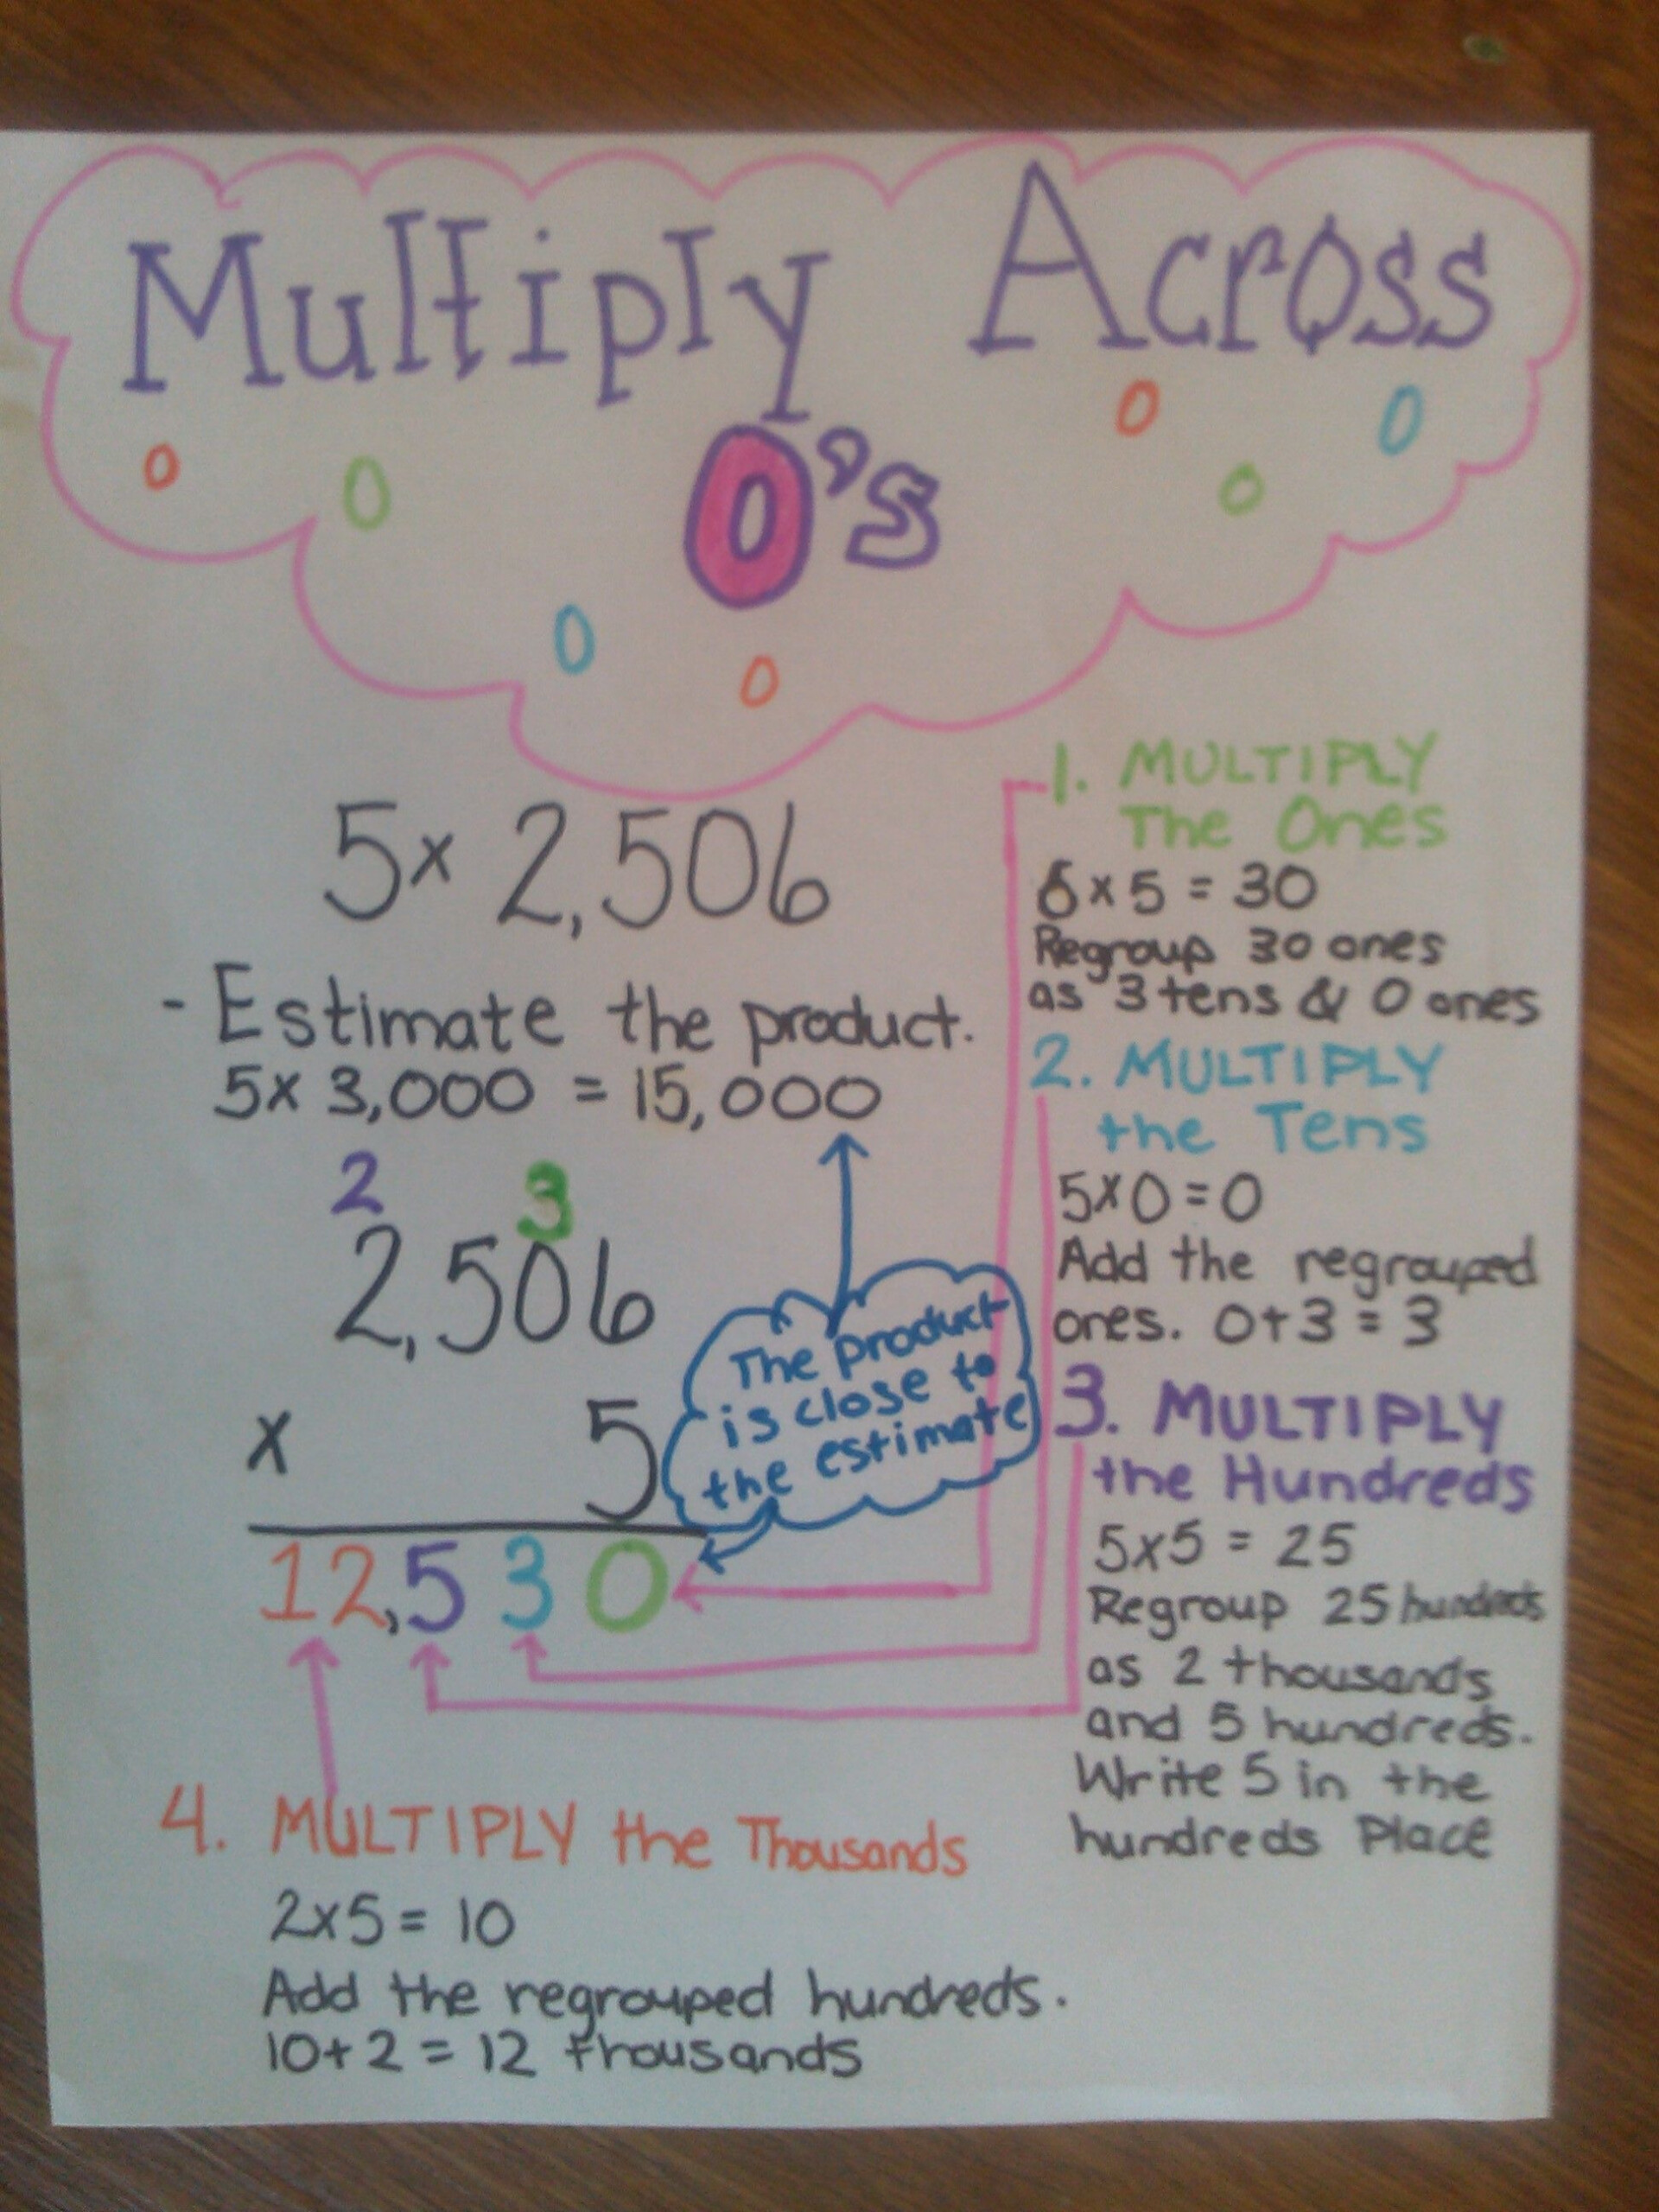 Multiply Across
0 0 0's 0 0 0
0 0
5 x 2,506
- Estimate the product.
5 x 3,000 = 15,000
2 3
2,506
x 5
12,530
The product
is close to
the estimate
1. MULTIPLY
The Ones
6 x 5 = 30
Regroup 30 ones
as 3 tens & 0 ones
2. MULTIPLY
the Tens
5 x 0 = 0
Add the regrouped
ones. 0 + 3 = 3
3. MULTIPLY
the Hundreds
5 x 5 = 25
Regroup 25 hundreds
as 2 thousands
and 5 hundreds.
Write 5 in the
hundreds Place
4. MULTIPLY the Thousands
2 x 5 = 10
Add the regrouped hundreds.
10 + 2 = 12 thousands